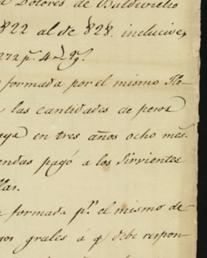 Dolores de Baldivieso
1822 al de 828. inclucive,
272 p.s 4 r.s
formada por el mismo
las cantidades de pesos
en tres años ocho mes.
pagó a los Sirvientes
formada p.r el mismo de
grales á q.e debe respon-